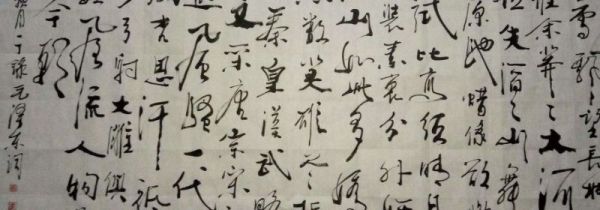 雪飘飘望长城
惟余莽莽大河
失滔滔山舞
原驰蜡象欲
试比高须晴日
装素裹分外
山如此多娇
数英雄
秦皇汉武略
唐宗宋
逊风骚一代
吉思汗祇
弓射大雕俱
风流人物
今朝
月于录毛泽东词